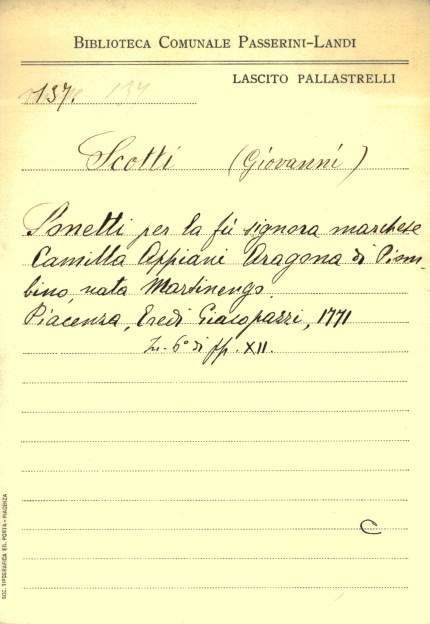 BIBLIOTECA COMUNALE PASSERINI-LANDI
LASCITO PALLASTRELLI
137. 134
Scotti (Giovanni)
Sonetti per la fù signora marchese
Camilla Appiani Aragona di Piom-
bino, nata Martinengo.
Piacenza, Eredi Giacopazzi, 1771
In-6° di pp. XII.
C
SOC. TIPOGRAFICA ED. PORTA - PIACENZA